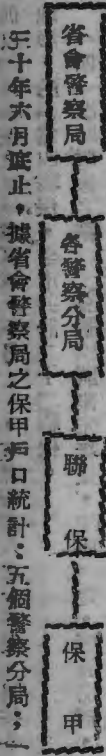 省會警察局
各警察分局
聯保
保甲
三十年六月底止，據省會警察局之保甲戶口統計：五個警察分局；